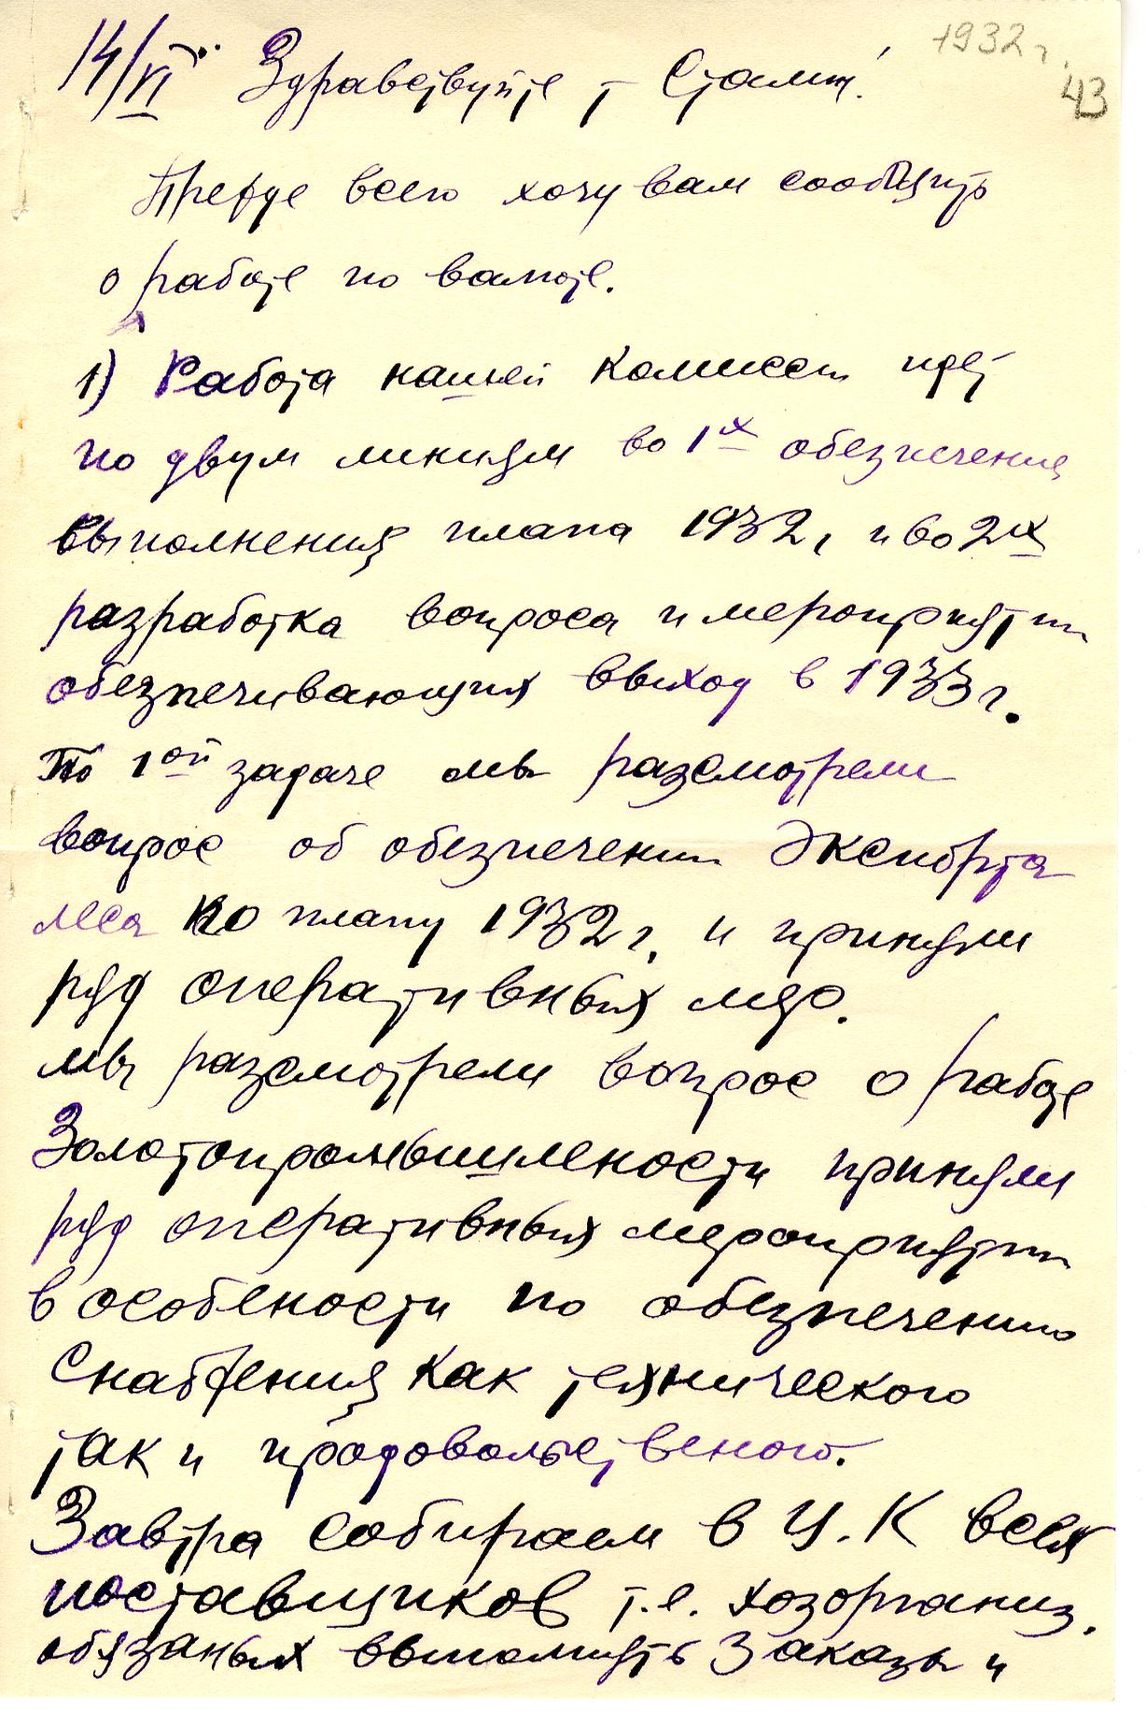 1932 г.
43
14/VI Здравствуйте т Сталин!
Прежде всего хочу вам сообщить
о работе по валюте.
1) Работа нашей комисси идет
по двум линиям во 1х обезпечения
выполнения плана 1932, и во 2х
разработка вопроса и мероприяти
обезпечивающих выход в 1933 г.
По 1ой задаче мы разсмотрели
вопрос об обезпечени экспорта
леса по плану 1932 г. и приняли
ряд оперативных мер.
мы разсмотрели вопрос о работе
Золотопромышлености приняли
ряд оперативных мероприяти
в особености по обезпечению
снабжения как технического
так и продовольственого.
Завтра собираем в Ц.К всех
поставщиков т.е. хозорганиз.
обязаных выполнять заказы и